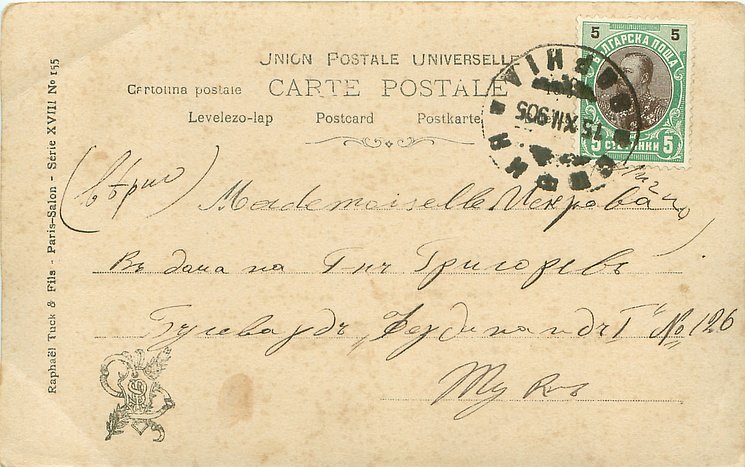 UNION POSTALE UNIVERSELLE
CARTE POSTALE
Cartolina postale
Levelezo-lap Postcard Postkarte
5 5
БЪЛГАРСКА ПОЩА
5 СТОТИНКИ 5
15 XII.905
СОФИЯ
Raphaël Tuck & Fils - Paris-Salon - Série XVIII No 155
(вѣрно)
Mademoiselle Искрова
Въ дома на Г-нъ Григоревъ
Булевардъ „Фердинандъ I“ No 126
Тукъ